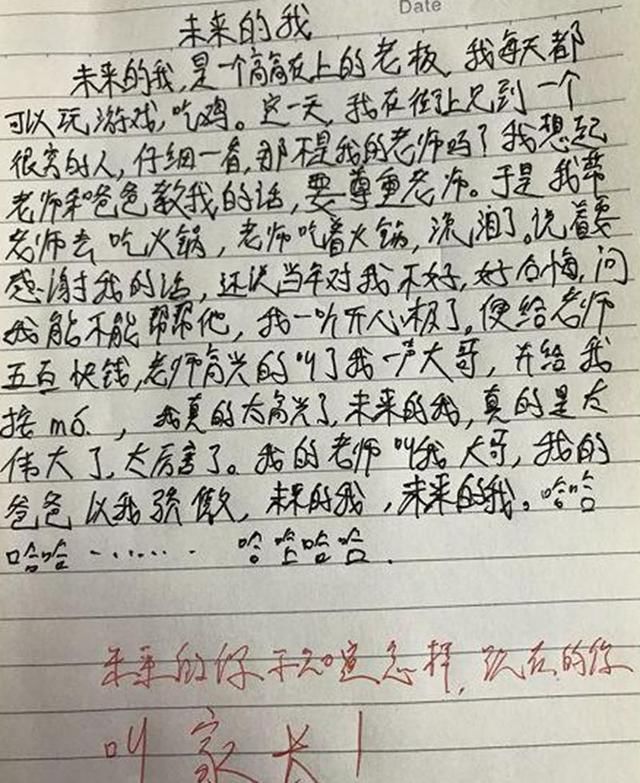 Date
未来的我
未来的我,是一个高高在上的老板,我每天都
可以玩游戏,吃鸡。这一天,我在街上见到一个
很穷的人,仔细一看,那不是我的老师吗?我想起
老师和爸爸教我的话,要尊重老师。于是我带
老师去吃火锅,老师吃着火锅,流泪了。说着要
感谢我的话,还说当年对我不好,好后悔,问
我能不能帮帮他,我一听开心极了。便给老师
五百快钱,老师高兴的叫了我一声大哥,并给我
按mó.,我真的太高兴了,未来的我,真的是太
伟大了,太厉害了。我的老师叫我大哥,我的
爸爸以我骄傲,未来的我,未来的我。哈哈
哈哈......哈哈哈哈.
未来的你不知道怎样,现在的你
叫家长!